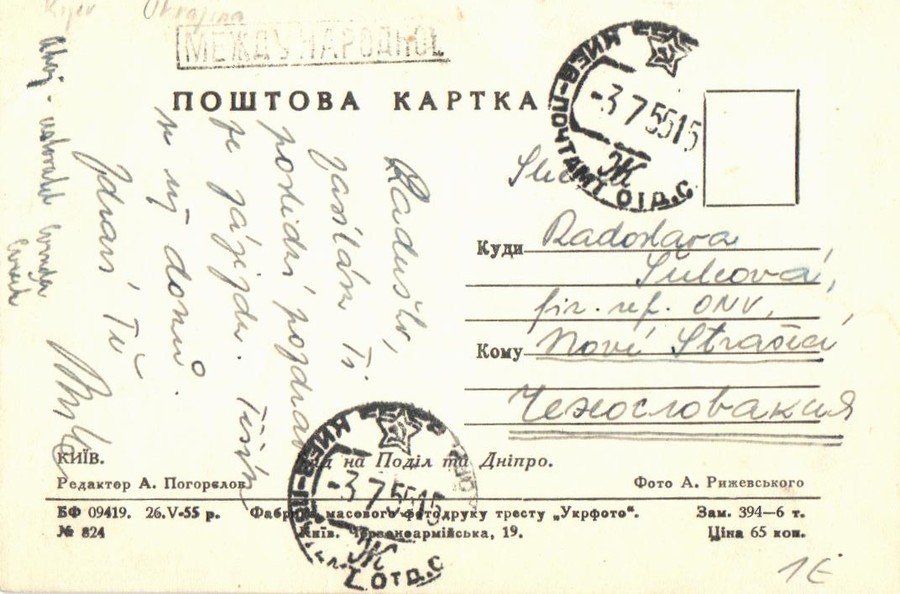 Kyiv Ukrajina
МЕЖДУНАРОДНОЕ
ПОШТОВА КАРТКА
КИЕВ-ПОЧТАМТ ОТД.С
-3 7 55 15
Ж
Raduško,
zasílám Ti
poslední pozdrav
ze zájezdu. Těším
se již domů.
Zdraví Tě
Ahoj -
Куди
Radoslava
fin. ref. ONV,
Кому
Nové Strašecí
Чехословакия
КИЇВ.
Вид на Поділ та Дніпро.
Редактор А. Погорєлов.
Фото А. Рижевського
БФ 09419. 26.V-55 р. Фабрика масового фотодруку тресту „Укрфото“. Зам. 394—6 т.
№ 824 Київ. Червоноармійська, 19. Ціна 65 коп.
КИЕВ-ПОЧТАМТ ОТД.С
-3 7 55 15
Ж
1E